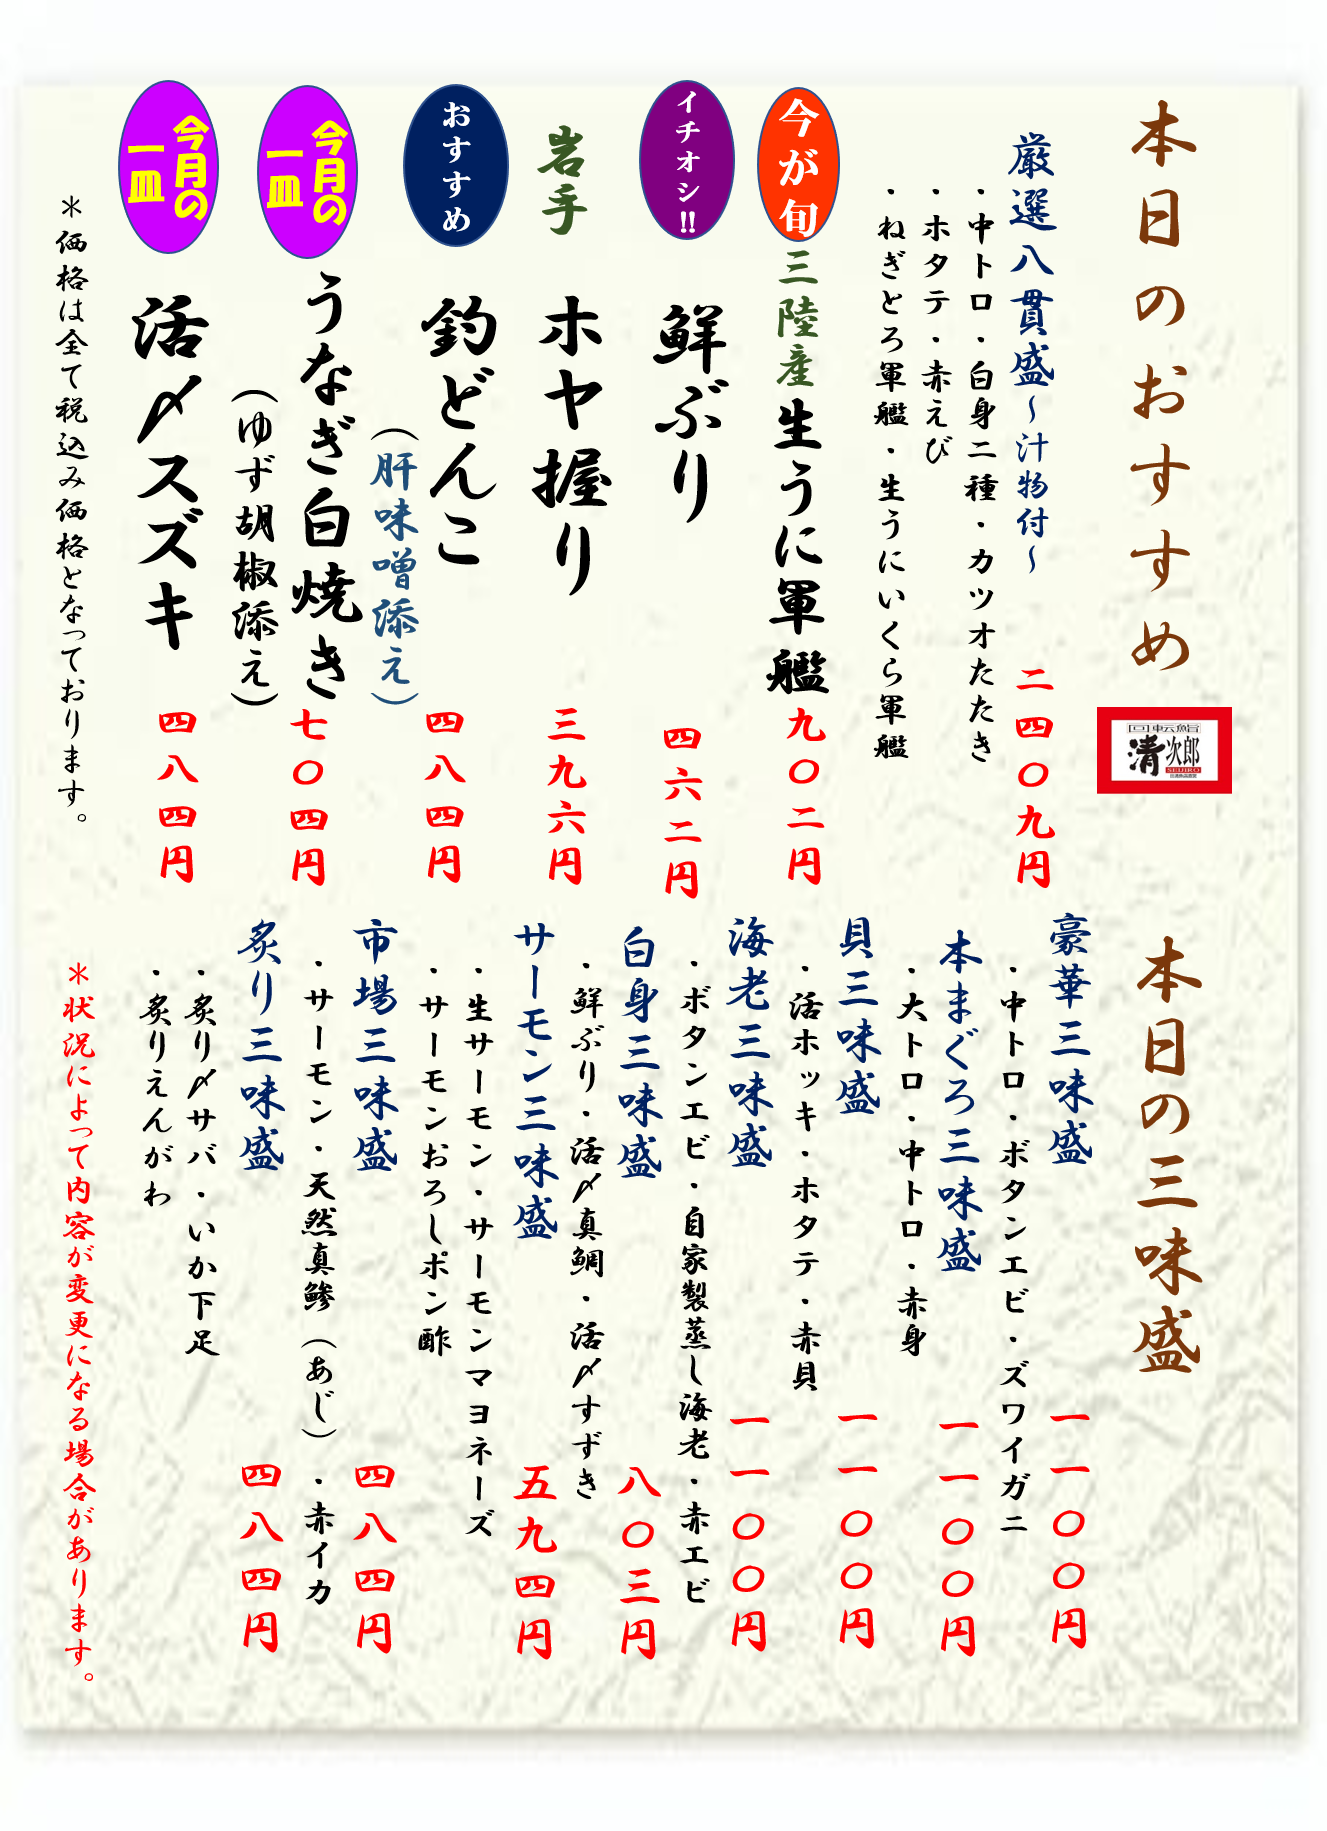 本日のおすすめ
回転鮨
清次郎
SEIJIRO
厳選八貫盛～汁物付～
二四〇九円
・中トロ・白身二種・カツオたたき
・ホタテ・赤えび
・ねぎとろ軍艦・生うにいくら軍艦
今が旬
三陸産生うに軍艦
九〇二円
イチオシ!!
鮮ぶり
四六二円
岩手
ホヤ握り
三九六円
おすすめ
釣どんこ
（肝味噌添え）
四八四円
今月の
一皿
うなぎ白焼き
（ゆず胡椒添え）
七〇四円
今月の
一皿
活〆スズキ
四八四円
＊価格は全て税込み価格となっております。
本日の三味盛
豪華三味盛
一一〇〇円
・中トロ・ボタンエビ・ズワイガニ
本まぐろ三味盛
一一〇〇円
・大トロ・中トロ・赤身
貝三味盛
一一〇〇円
・活ホッキ・ホタテ・赤貝
海老三味盛
一一〇〇円
・ボタンエビ・自家製蒸し海老・赤エビ
白身三味盛
八〇三円
・鮮ぶり・活〆真鯛・活〆すずき
サーモン三味盛
五九四円
・生サーモン・サーモンマヨネーズ
・サーモンおろしポン酢
市場三味盛
四八四円
・サーモン・天然真鯵（あじ）・赤イカ
炙り三味盛
四八四円
・炙り〆サバ・いか下足
・炙りえんがわ
＊状況によって内容が変更になる場合があります。